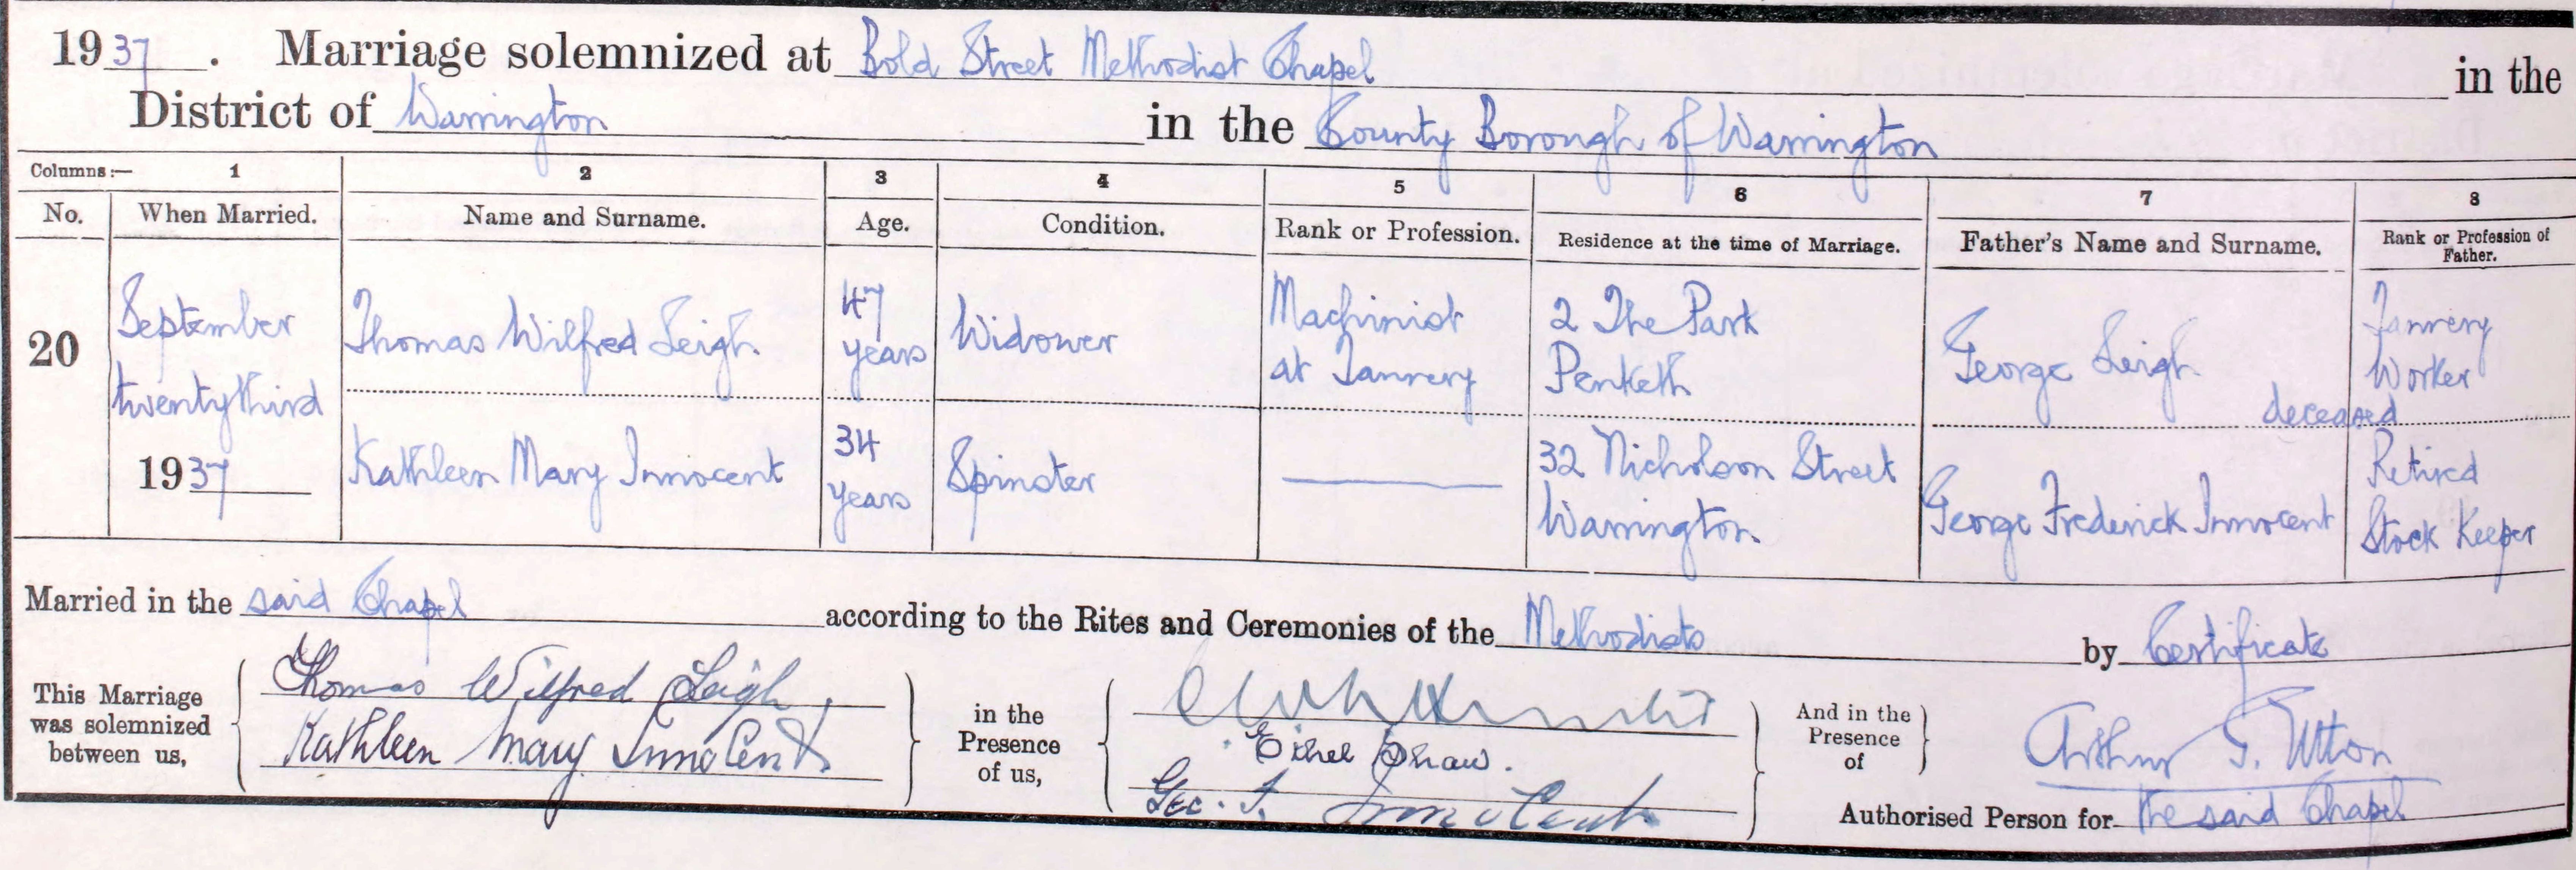 1937. Marriage solemnized at Bold Street Methodist Chapel in the
District of Warrington in the County Borough of Warrington
Columns:— 1 2 3 4 5 6 7 8
No. When Married. Name and Surname. Age. Condition. Rank or Profession. Residence at the time of Marriage. Father's Name and Surname. Rank or Profession of Father.
20
September
twentythird
1937
Thomas Wilfred Leigh
47
years
Widower
Machinist
at Tannery
2 The Park
Penketh
George Leigh
deceased
Tannery
Worker
Kathleen Mary Innocent
34
years
Spinster
32 Nicholson Street
Warrington
George Frederick Innocent
Retired
Stock Keeper
Married in the said Chapel according to the Rites and Ceremonies of the Methodists by Certificate
This Marriage
was solemnized
between us,
Thomas Wilfred Leigh
Kathleen Mary Innocent
in the
Presence
of us,
Ethel Shaw.
Geo. F. Innocent
And in the
Presence
of
Arthur Utton
Authorised Person for the said Chapel